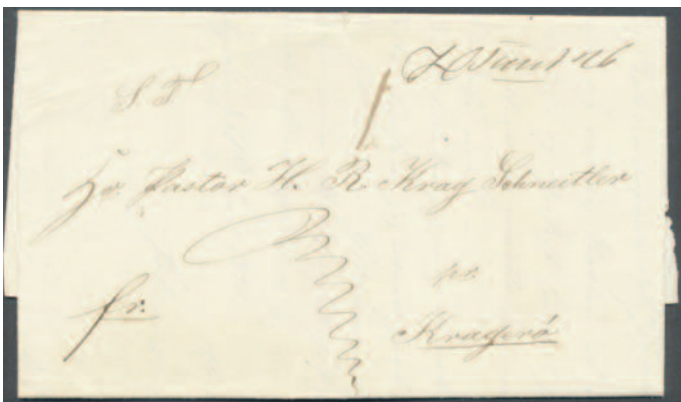 S T
Hr. Pastor H. R. Krag Schneitler
fr.
pr.
Kragerö